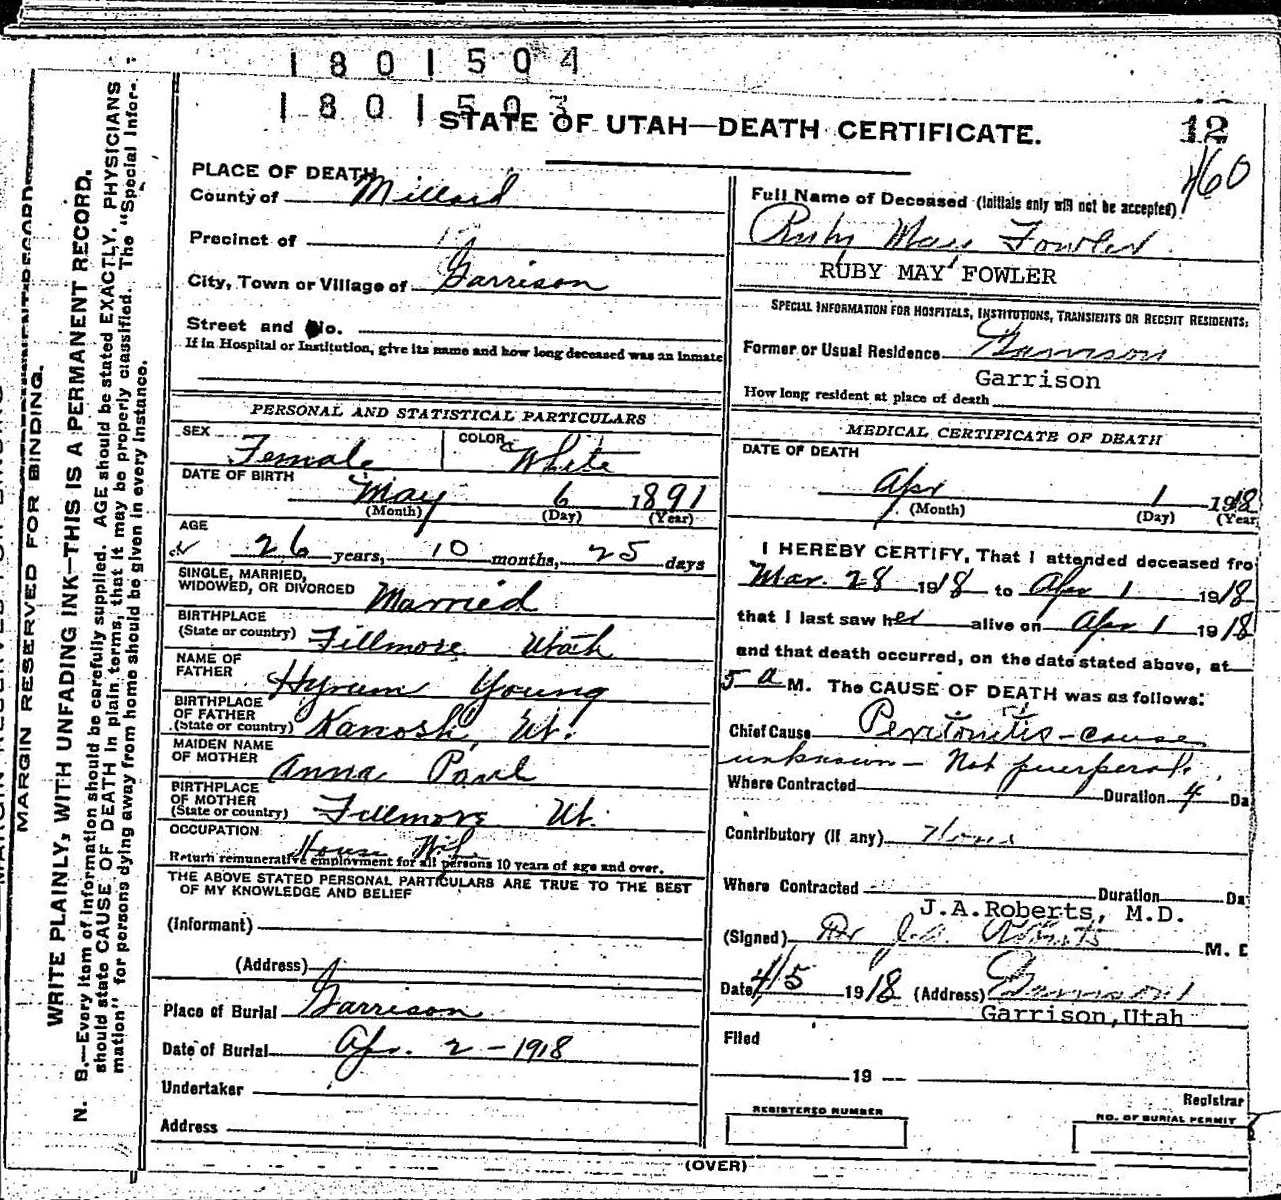 1801504
1801503
STATE OF UTAH—DEATH CERTIFICATE.
12
460
MARGIN RESERVED FOR BINDING.
WRITE PLAINLY, WITH UNFADING INK—THIS IS A PERMANENT RECORD.
N. B.—Every item of information should be carefully supplied. AGE should be stated EXACTLY. PHYSICIANS
should state CAUSE OF DEATH in plain terms, that it may be properly classified. The "Special Infor-
mation" for persons dying away from home should be given in every instance.
PLACE OF DEATH
County of Millard
Precinct of
City, Town or Village of Garrison
Street and No.
If in Hospital or Institution, give its name and how long deceased was an inmate
PERSONAL AND STATISTICAL PARTICULARS
SEX Female COLOR White
DATE OF BIRTH May 6 1891
(Month) (Day) (Year)
AGE
26 years, 10 months, 25 days
SINGLE, MARRIED,
WIDOWED, OR DIVORCED Married
BIRTHPLACE
(State or country) Fillmore Utah
NAME OF
FATHER Hyrum Young
BIRTHPLACE
OF FATHER
(State or country) Kanosh, Ut.
MAIDEN NAME
OF MOTHER Anna
BIRTHPLACE
OF MOTHER
(State or country) Fillmore Ut.
OCCUPATION House Wife
Return remunerative employment for all persons 10 years of age and over.
THE ABOVE STATED PERSONAL PARTICULARS ARE TRUE TO THE BEST
OF MY KNOWLEDGE AND BELIEF
(Informant)
(Address)
Place of Burial Garrison
Date of Burial Apr. 2 - 1918
Undertaker
Address
Full Name of Deceased (Initials only will not be accepted)
Ruby May Fowler
RUBY MAY FOWLER
SPECIAL INFORMATION FOR HOSPITALS, INSTITUTIONS, TRANSIENTS OR RECENT RESIDENTS:
Former or Usual Residence Garrison
Garrison
How long resident at place of death
MEDICAL CERTIFICATE OF DEATH
DATE OF DEATH
Apr 1 1918
(Month) (Day) (Year
I HEREBY CERTIFY, That I attended deceased fro
Mar. 28 1918 to Apr 1 1918
that I last saw her alive on Apr 1 1918
and that death occurred, on the date stated above, at
5 a M. The CAUSE OF DEATH was as follows:
Chief Cause Peritonitis - cause
unknown - Not puerperal.
Where Contracted Duration 4 Da
Contributory (if any) None
Where Contracted Duration Da
J.A.Roberts, M.D.
(Signed) Dr J.A. Roberts M. D
Date 4/5 1918 (Address) Garrison
Garrison,Utah
Filed
19
Registrar
REGISTERED NUMBER
NO. OF BURIAL PERMIT
(OVER)